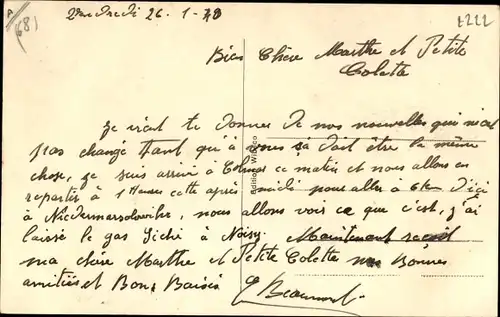 (68)
Vendredi 26-1-40
Bien Chère Marthe et Petite
Colette
Je vient te donner de nos nouvelles qui n'est
pas changé tant qu'à vous sa doit être la même
chose, je suis arrivé à Colmar ce matin et nous allons en
repartir à 1 Heures cette après midi pour aller à 6 km d'ici
à Niedermorschwihr, nous allons voir ce que c'est, j'ai
laissé le gas à Noisy. Maintenant reçoit
ma chère Marthe et Petite Colette mes Bonnes
amitiés et Bons Baisés
Beaumont